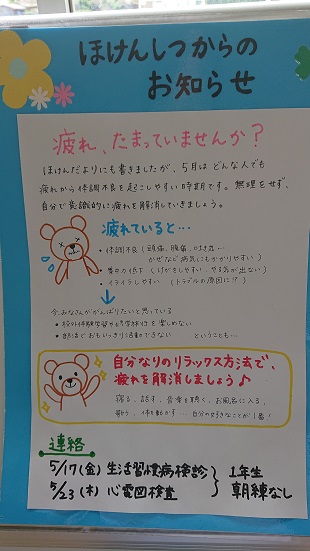 ほけんしつからの
お知らせ
疲れ、たまっていませんか？
ほけんだよりにも書きましたが、5月は どんな人でも
疲れから体調不良を起こしやすい時期です。無理をせず、
自分で意識的に疲れを解消していきましょう。
疲れていると…
・体調不良（頭痛、腹痛、吐き気…
かぜなど病気にもかかりやすい）
・集中力低下（けがをしやすい、やる気が出ない）
・イライラしやすい（トラブルの原因に!?）
今、みなさんががんばりたいと思っている
を楽しめない
・部活で おもいっきり活動できない ということも…
自分なりのリラックス方法で、
疲れを解消しましょう♪
寝る、話す、音楽を聴く、お風呂に入る、
歌う、体を動かす… 自分の好きなことが1番！
連絡
5/17(金) 生活習慣病検診
5/23(木) 心電図検査
1年生
朝練なし